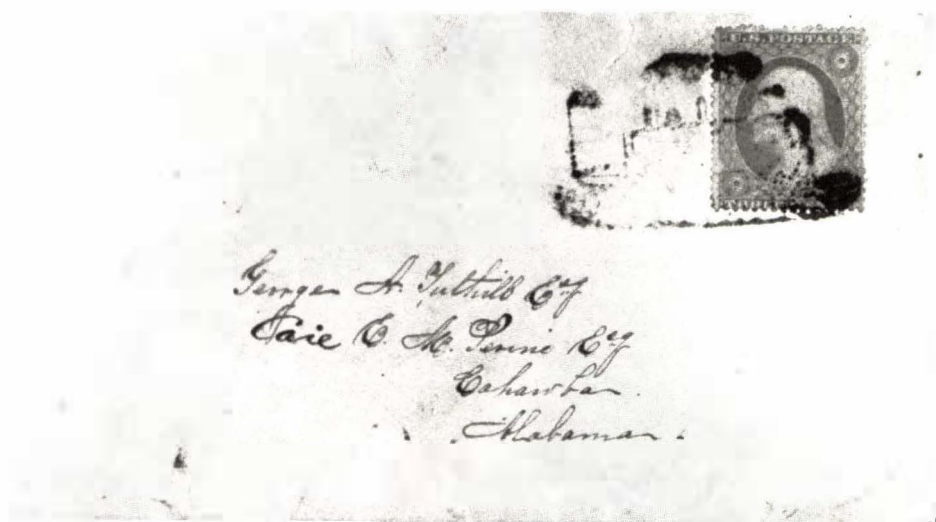 U.S. POSTAGE
George A. Tuthill Esq
Care E. M. Perine Esq
Cahawba
Alabama.